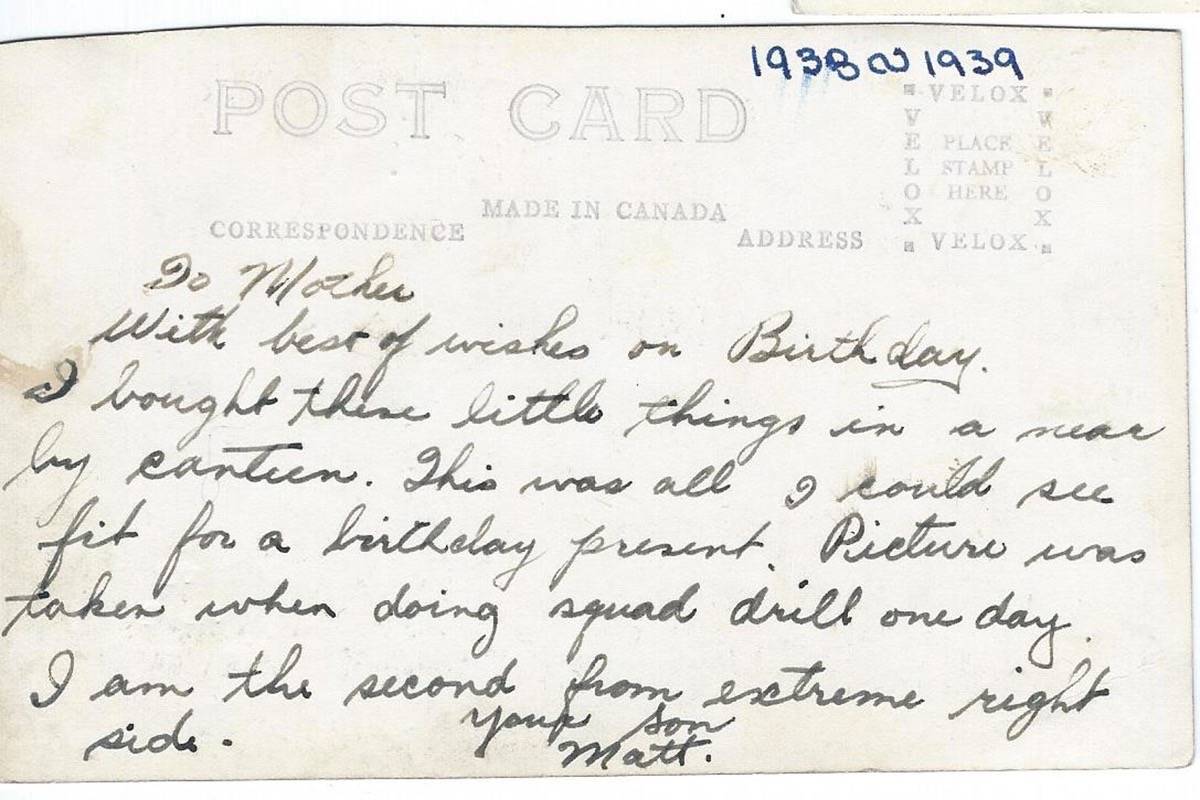 1938 or 1939
POST CARD
VELOX
VELOX
VELOX
PLACE
STAMP
HERE
VELOX
MADE IN CANADA
CORRESPONDENCE
ADDRESS
To Mother
With best of wishes on Birthday.
I bought these little things in a near
by canteen. This was all I could see
fit for a birthday present. Picture was
taken when doing squad drill one day.
I am the second from extreme right
side.
your son
Matt.